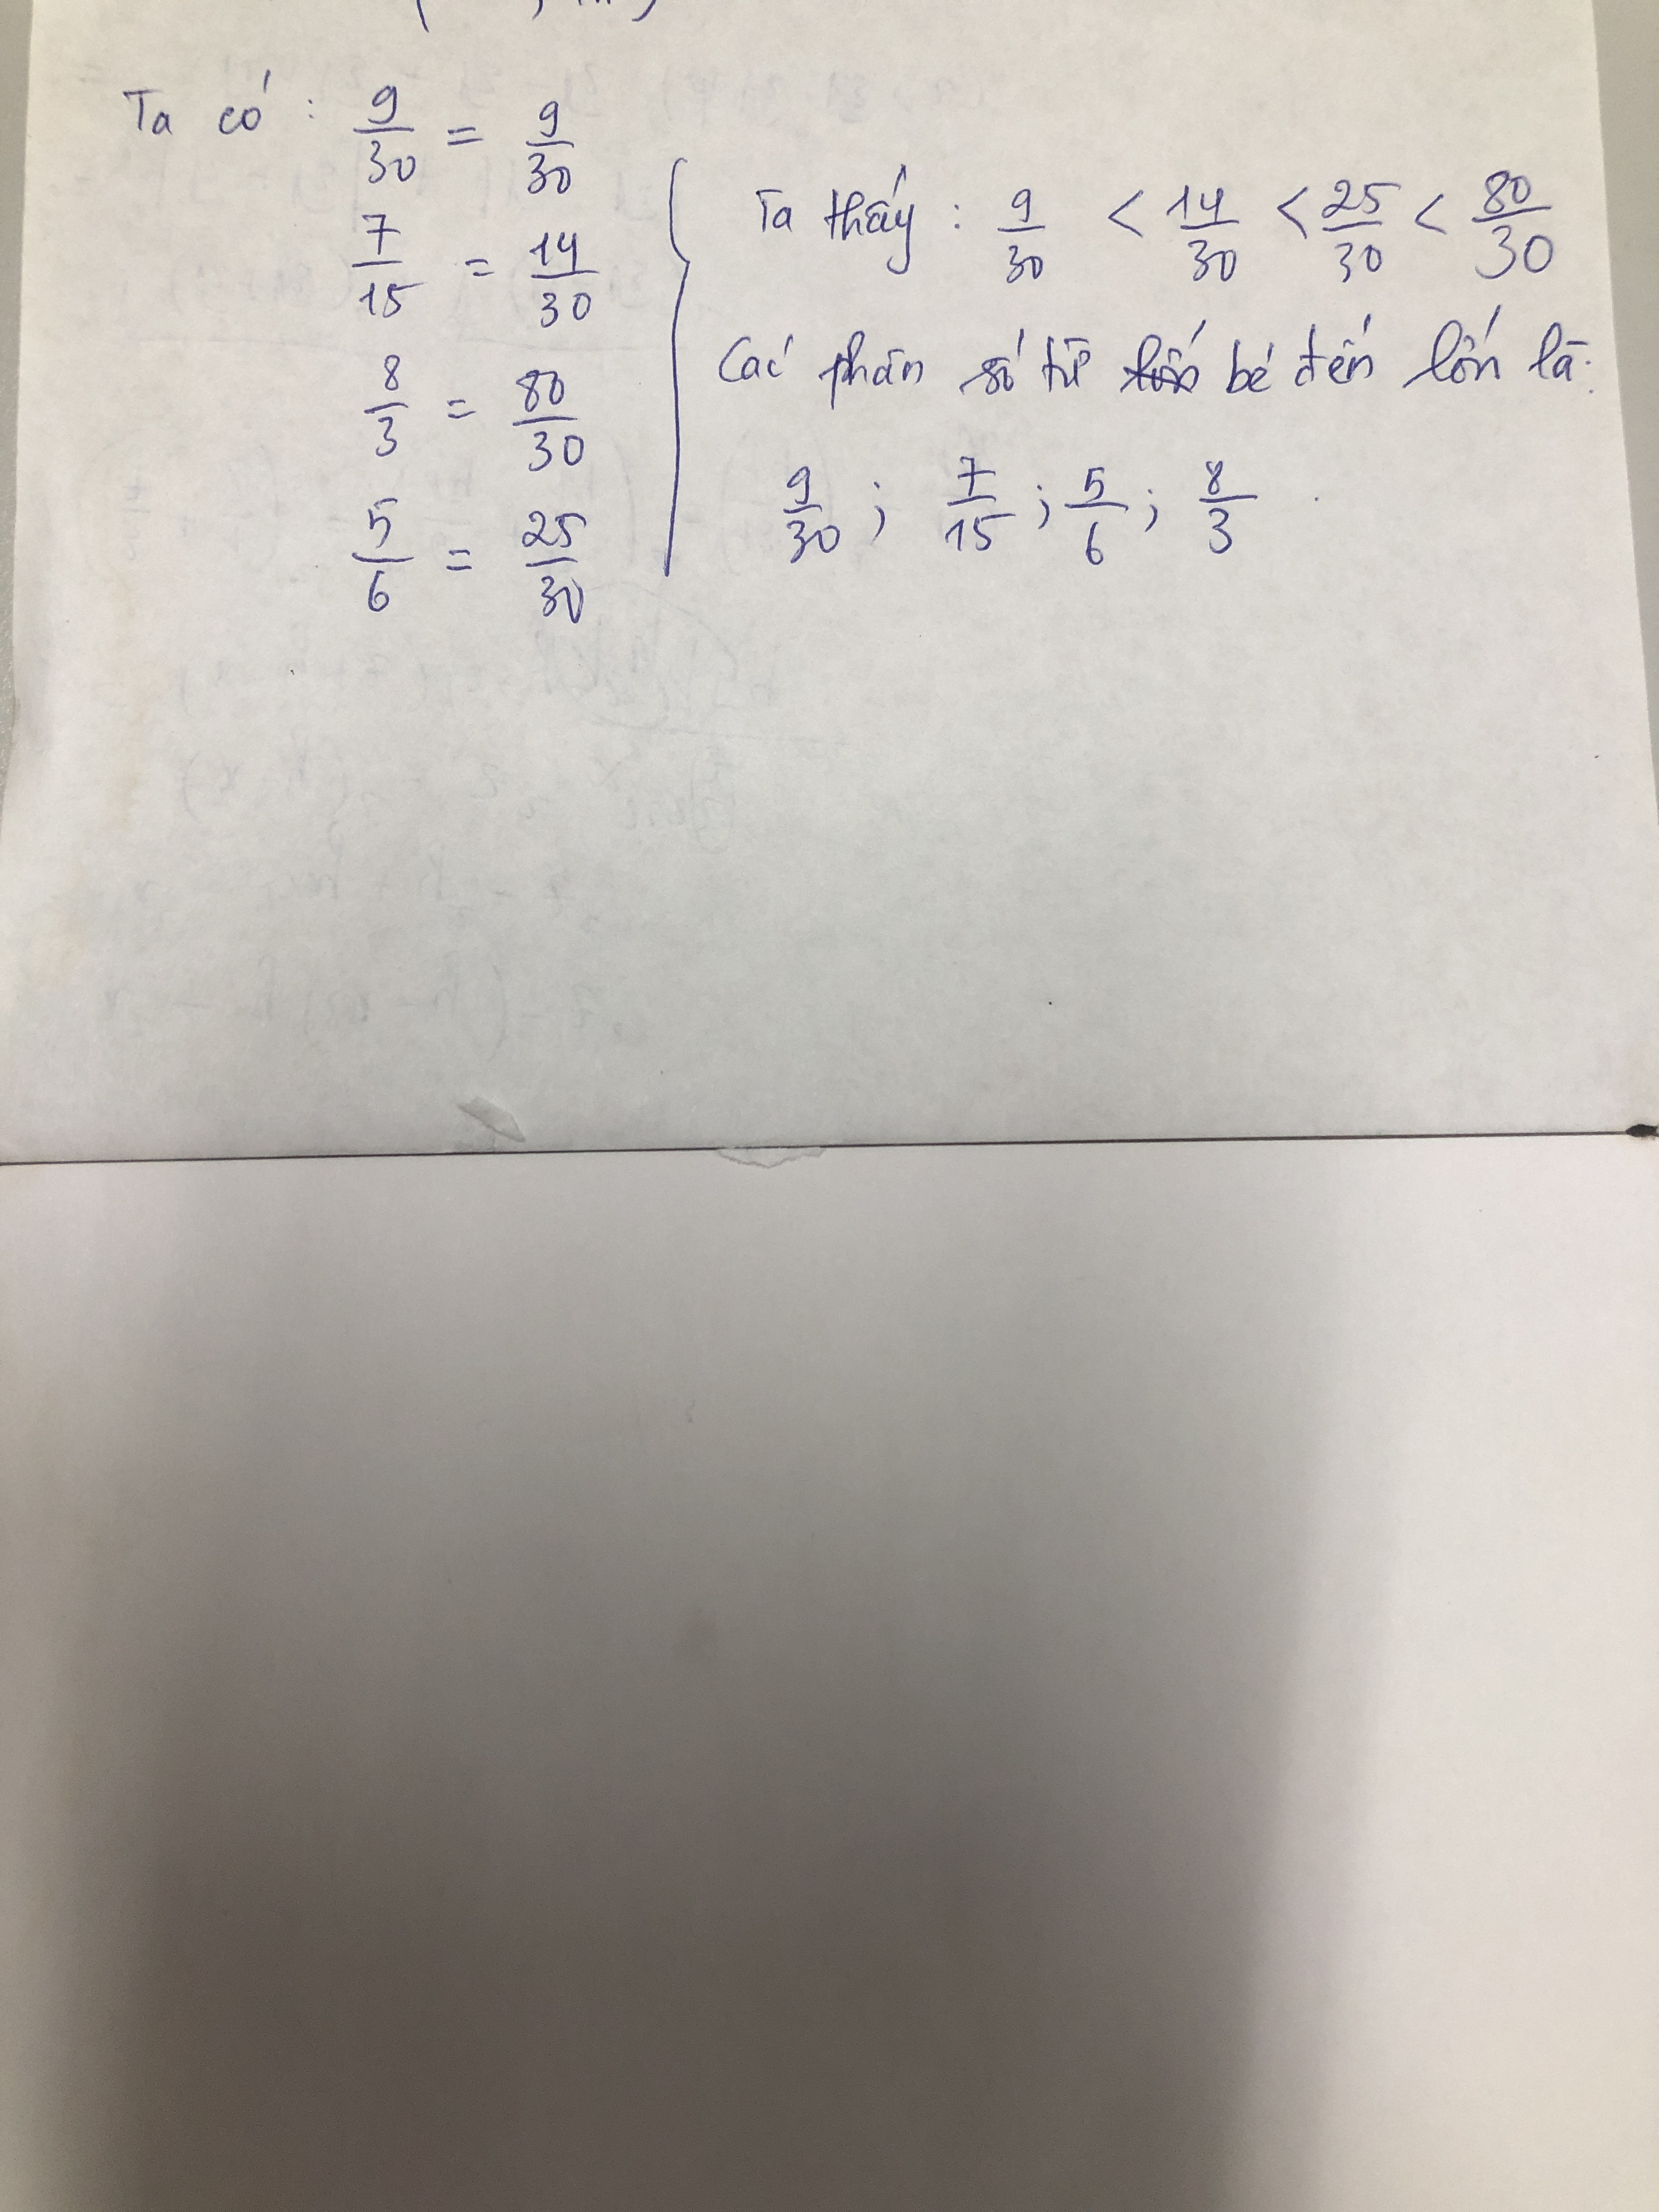 Ta có: 9/30 = 9/30
7/15 = 14/30
8/3 = 80/30
5/6 = 25/30
Ta thấy: 9/30 < 14/30 < 25/30 < 80/30
Các phân số từ bé đến lớn là:
9/30; 7/15; 5/6; 8/3